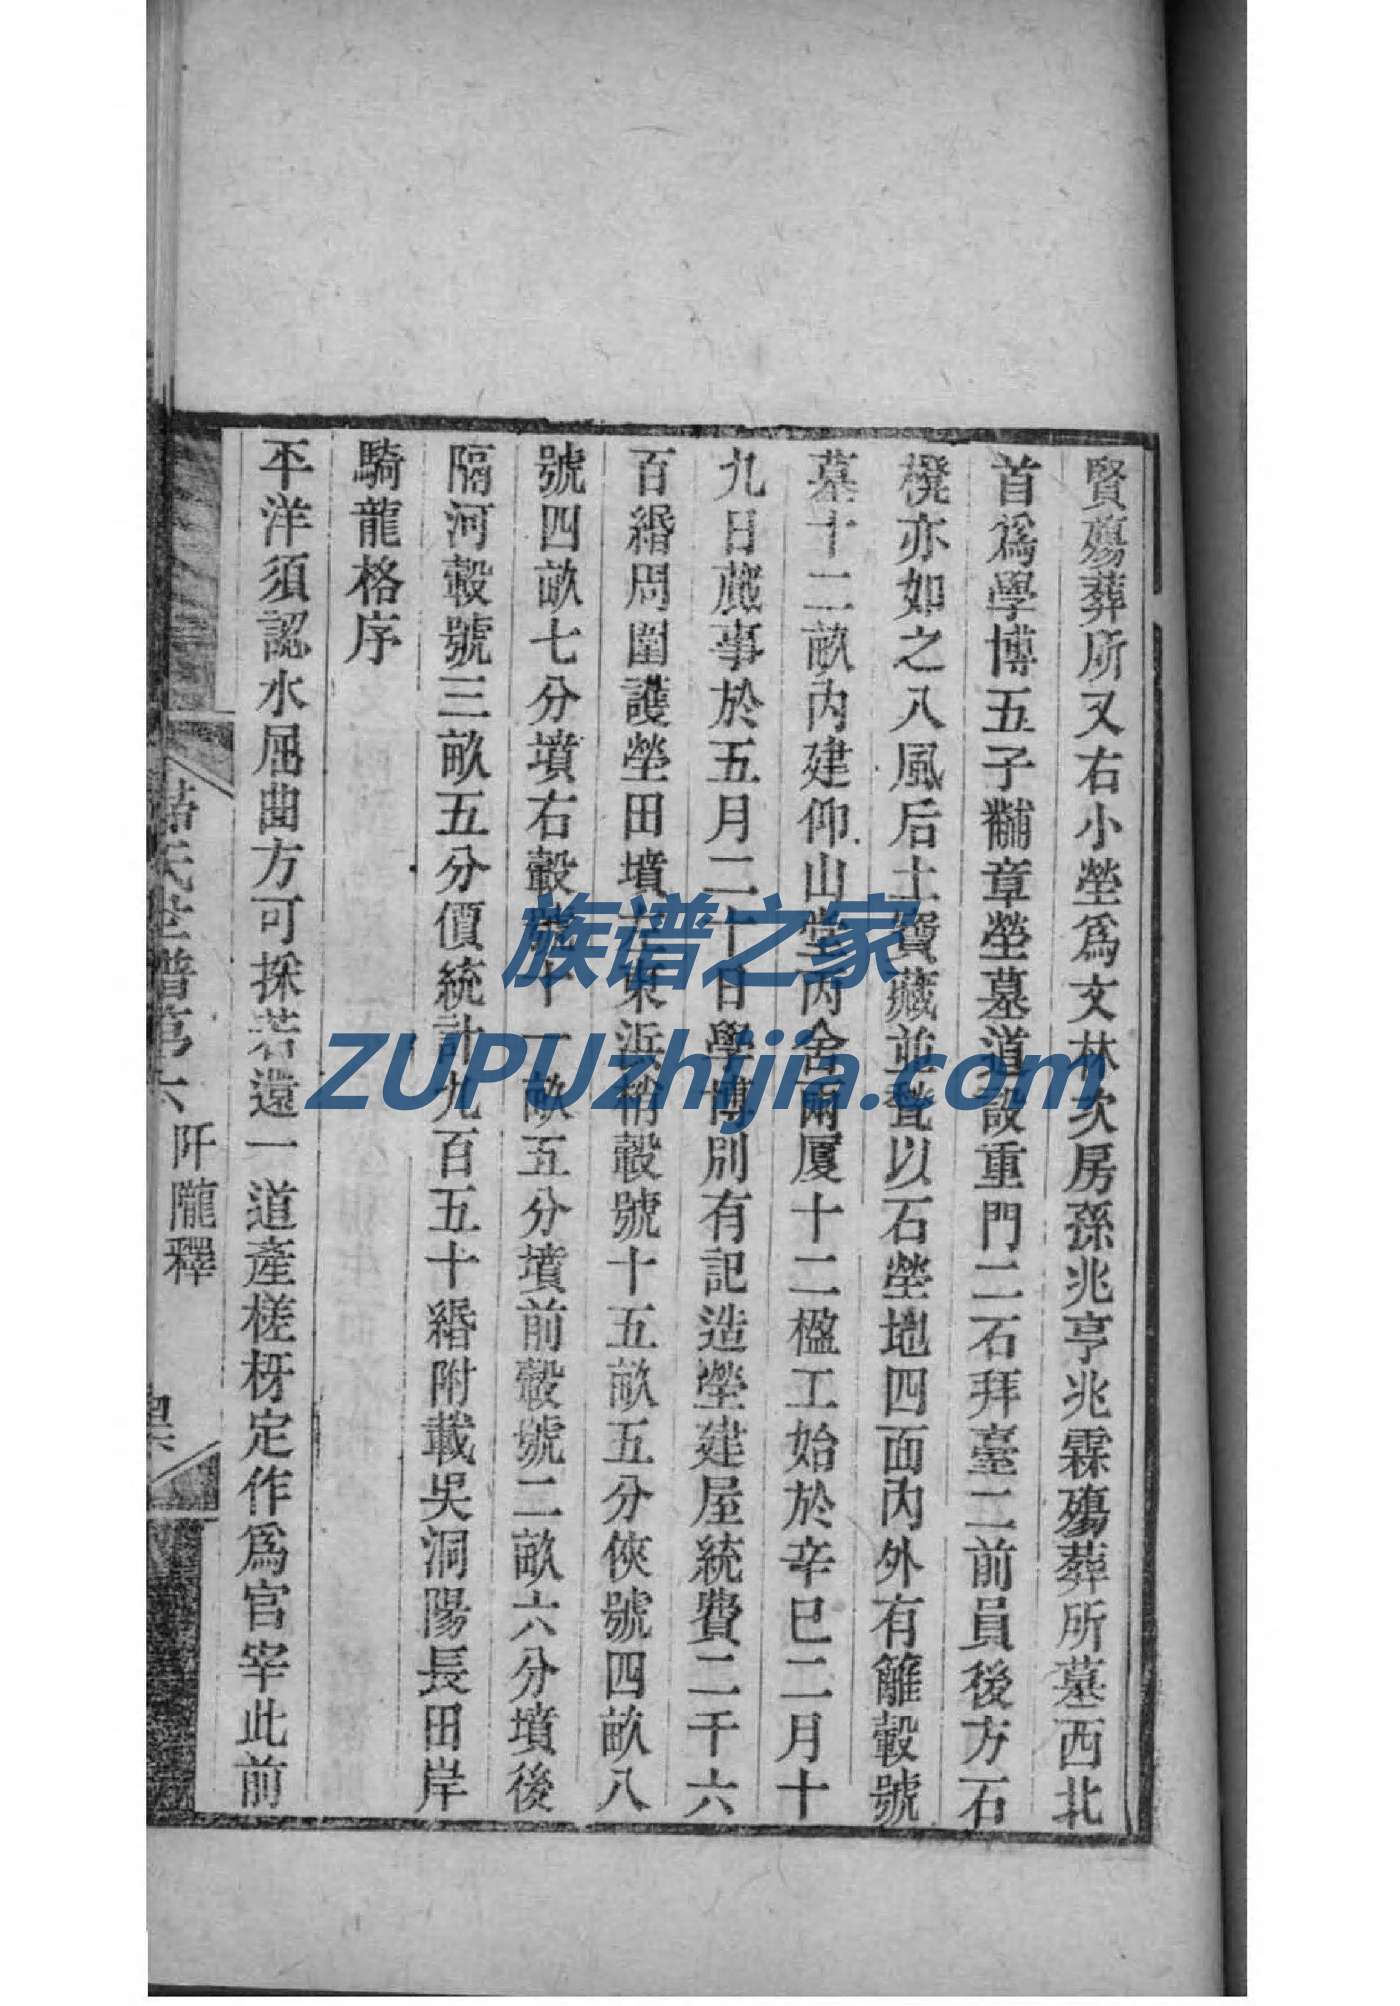 賢殤葬所又右小塋為文林次房孫兆亨兆霖殤葬所墓西北
首為學博五子黼章塋墓道設重門二石拜臺二前員後方石
櫈亦如之八風后土寶藏並甃以石塋地四面內外有籬轂號
墓十二畝內建仰山堂丙舍兩廈十二楹工始於辛巳二月十
九日蕆事於五月二十日學博別有記造塋建屋統費二千六
百緡周圍護塋田墳左東浜稍轂號十五畝五分俠號四畝八
號四畝七分墳右轂號十一畝五分墳前轂號二畝六分墳後
隔河轂號三畝五分價統計九百五十緡附載吳洞陽長田岸
騎龍格序
平洋須認水屈曲方可採若還一道產槎枒定作為官宰此前
氏世譜第六 阡隴釋
族谱之家
ZUPUzhijia.com